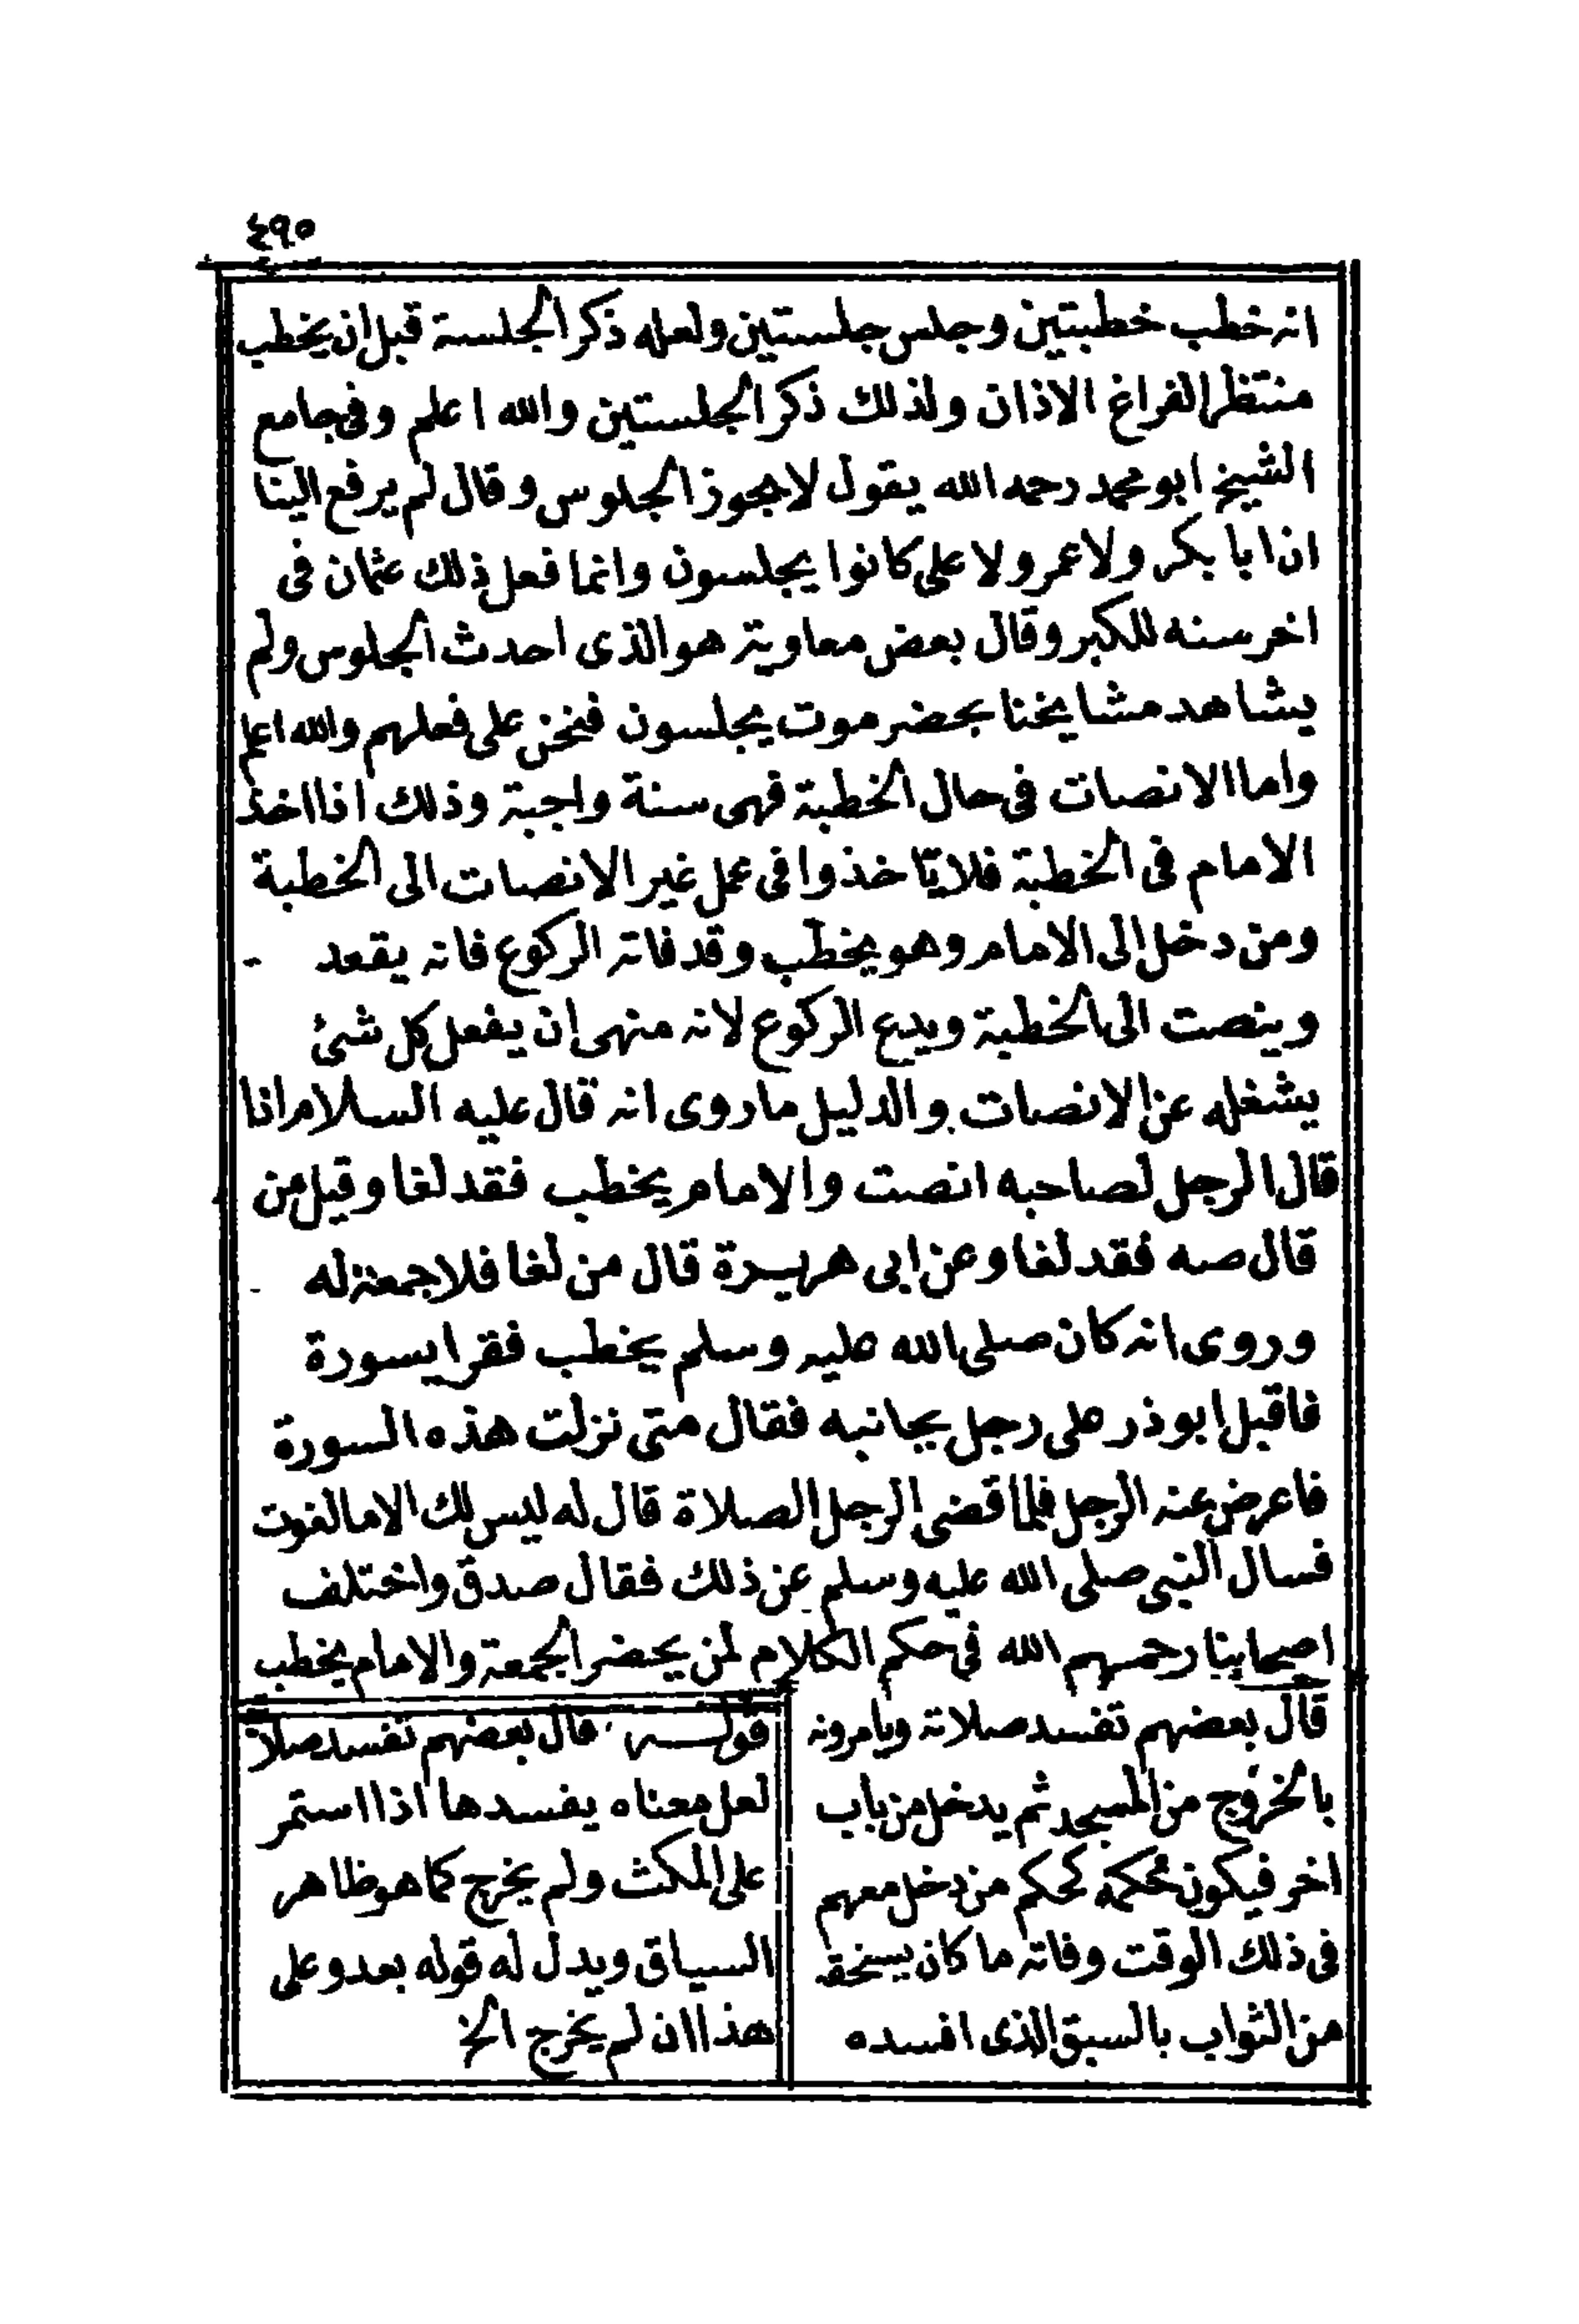 ٤٩٥
انه خطب خطبتين وجلس جلستين ولعله ذكر الجلسة قبل ان يخطب
منتظرا لفراغ الاذان ولذلك ذكر الجلستين والله اعلم وفى جامع
الشيخ ابو محمد رحمه الله يقول لا يجوز الجلوس وقال لم يرفع الينا
ان ابا بكر ولا عمر ولا على كانوا يجلسون وانما فعل ذلك عثمان فى
اخر سنه للكبر وقال بعض معاوية هو الذى احدث الجلوس ولم
يشاهد مشايخنا بحضرموت يجلسون فنحن على فعلهم والله اعلم
واما الانصات فى حال الخطبة فهى سنة واجبة وذلك اذا اخذ
الامام فى الخطبة فلا يتاخذوا فى عمل غير الانصات الى الخطبة
ومن دخل الى الامام وهو يخطب وقد فاته الركوع فانه يقعد
وينصت الى الخطبة ويدع الركوع لانه منهى ان يفعل كل شئ
يشغله عن الانصات والدليل ما روى انه قال عليه السلام اذا
قال الرجل لصاحبه انصت والامام يخطب فقد لغا وقيل من
قال صه فقد لغا وعن ابى هريرة قال من لغا فلا جمعة له
وروى انه كان صلى الله عليه وسلم يخطب فقرا بسورة
فاقبل ابو ذر على رجل بجانبه فقال متى نزلت هذه السورة
فاعرض عنه الرجل فلما قضى الرجل الصلاة قال له ليس لك الا ما لغوت
فسال النبى صلى الله عليه وسلم عن ذلك فقال صدق واختلف
اصحابنا رحمهم الله فى حكم الكلام لمن يحضر الجمعة والامام يخطب
قال بعضهم تفسد صلاته ويامرونه
بالخروج من المسجد ثم يدخل من باب
اخر فيكون حكمه كحكم من دخل معهم
فى ذلك الوقت وفاته ما كان يستحقه
من الثواب بالسبق الذى افسده
قولـــه قال بعضهم تفسد صلاته
لعل معناه يفسدها اذا استمر
على المكث ولم يخرج كما هو ظاهر
السياق ويدل له قوله بعد وعلى
هذا ان لم يخرج الخ